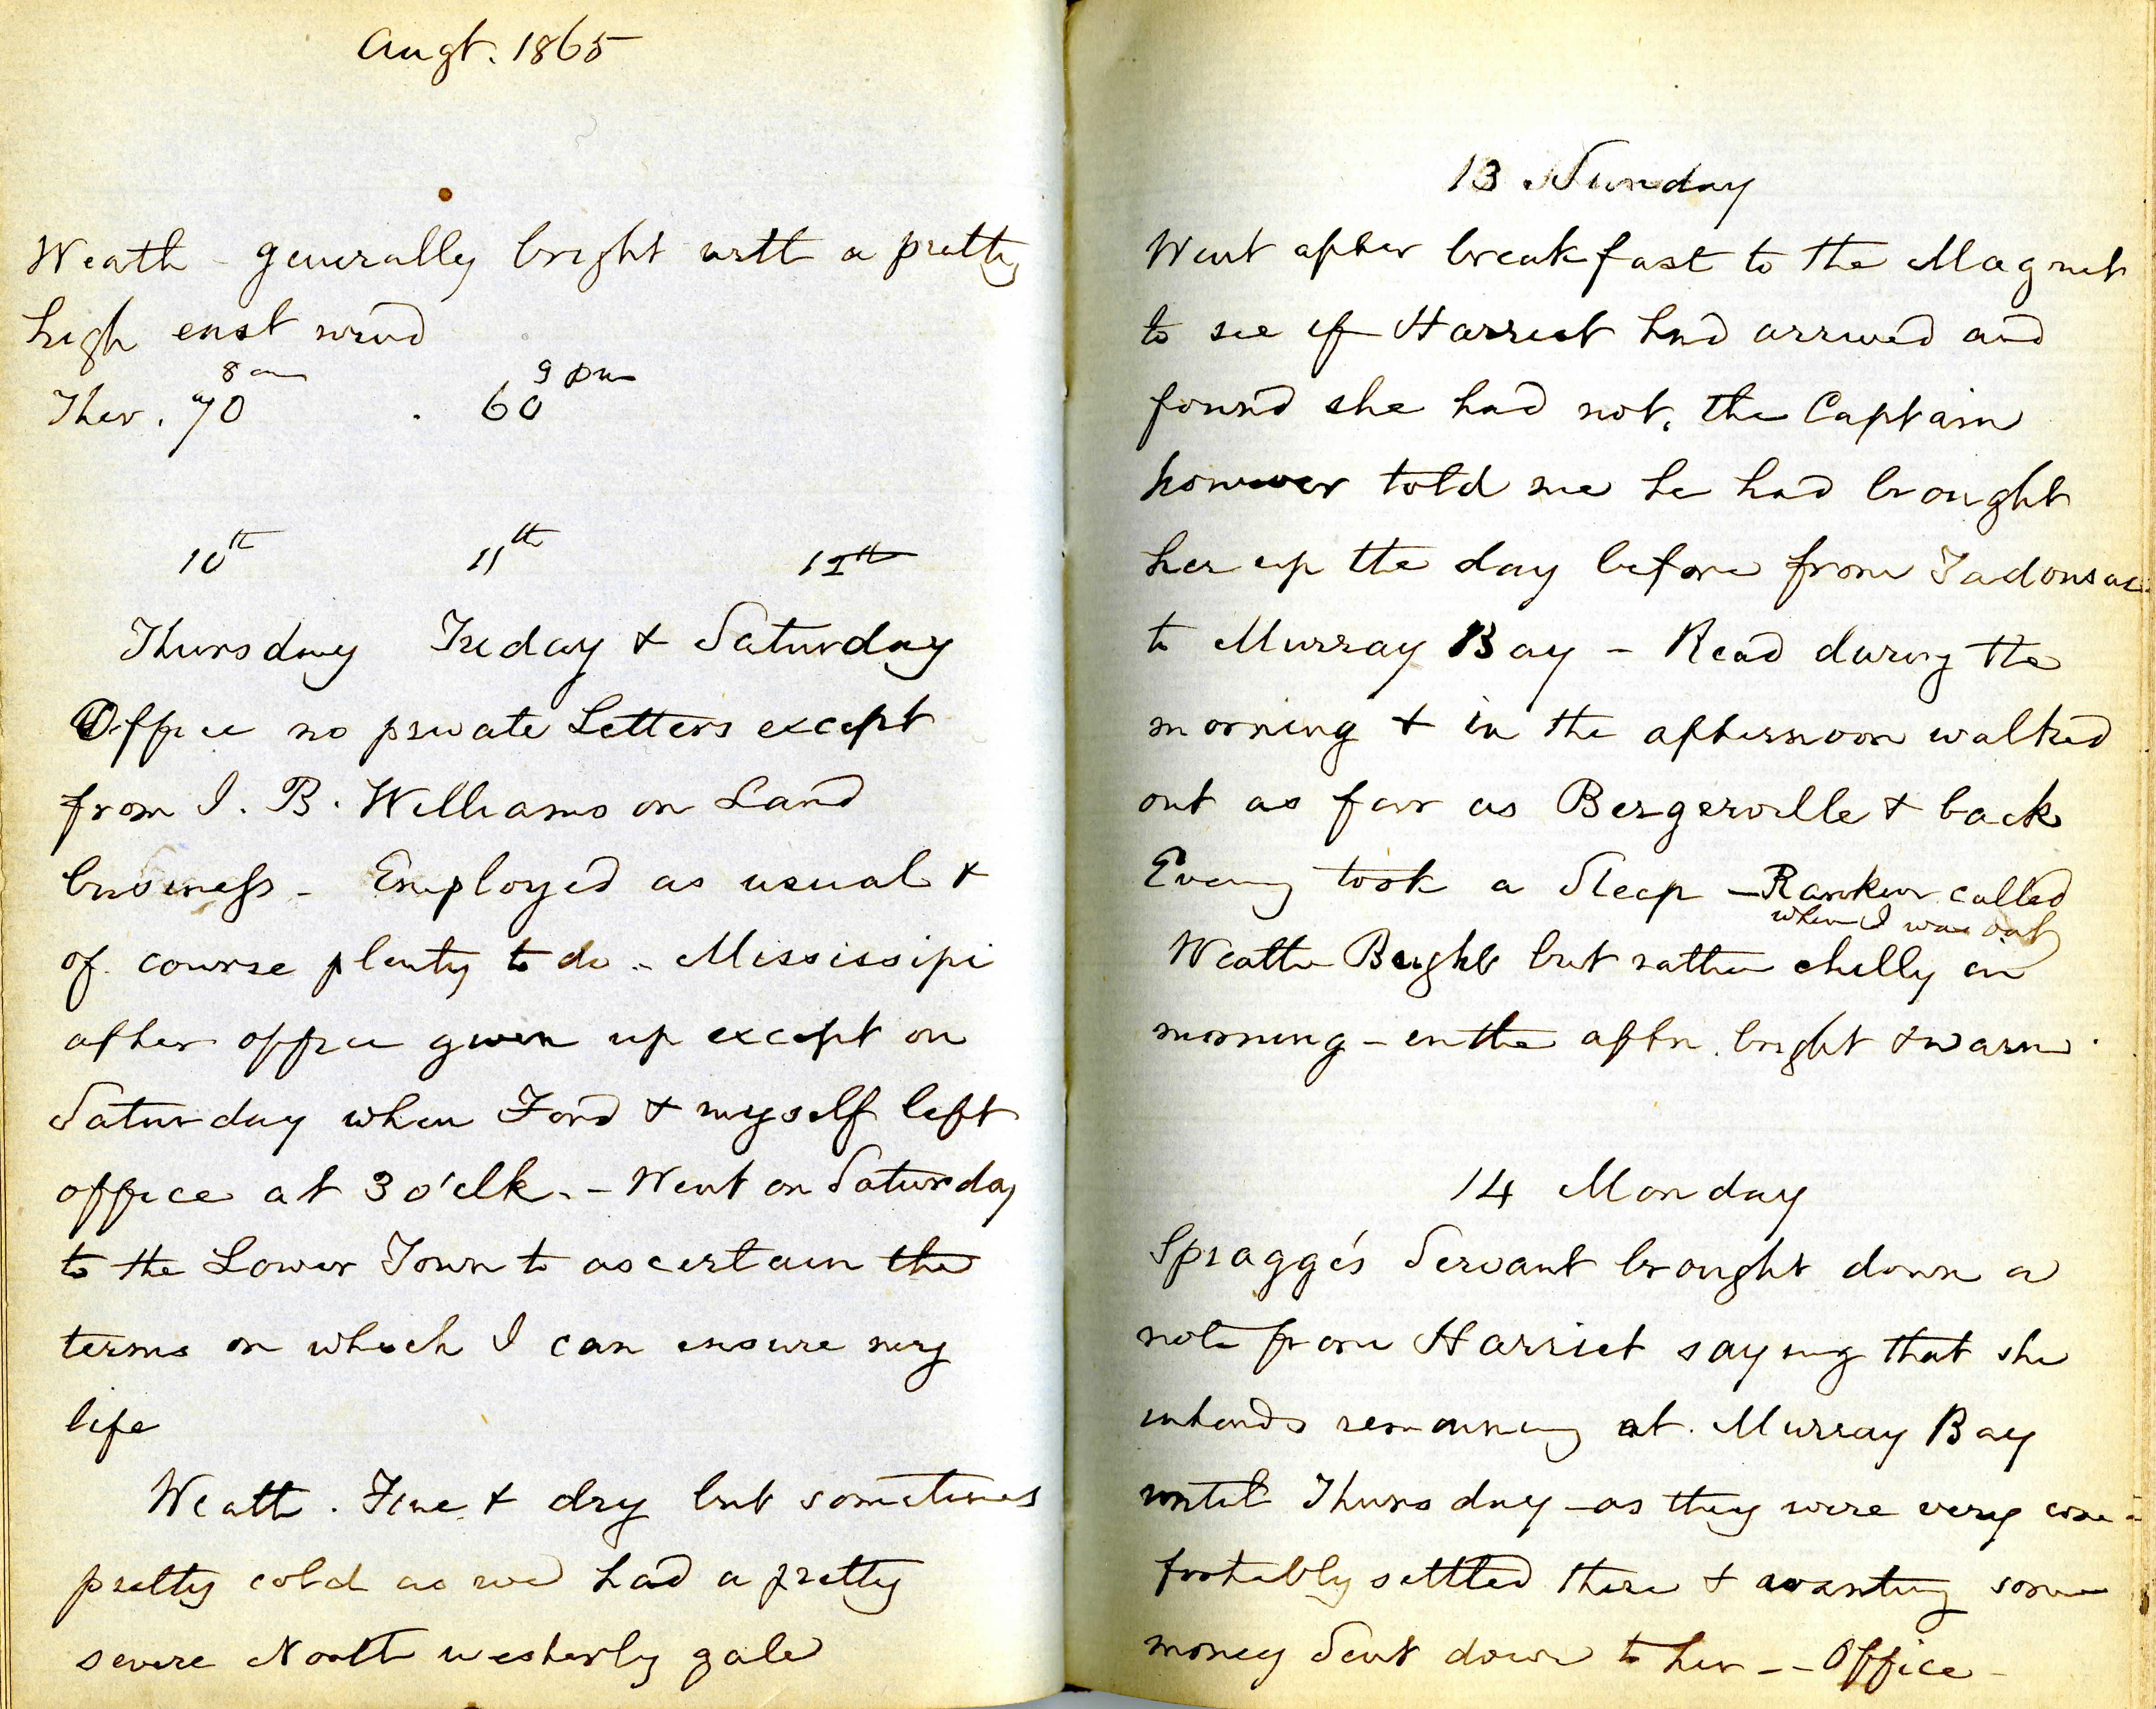 Augt. 1865
Weath - generally bright with a pretty
high east wind
8 am 9 pm
Ther. 70 . 60
10th 11th 12th
Thursday Friday & Saturday
Office no private Letters except
from J. B. Williams on Land
business - Employed as usual &
of course plenty to do - Mississipi
after office given up except on
Saturday when Ford & myself left
office at 3 o'clk. - Went on Saturday
to the Lower Town to ascertain the
terms on which I can ensure my
life
Weath. Fine & dry but sometimes
pretty cold as we had a pretty
severe North westerly gale
13 Sunday
Went after breakfast to the Magnet
to see if Harriet had arrived and
found she had not, the Captain
however told me he had brought
her up the day before from Tadousac
to Murray Bay - Read during the
morning & in the afternoon walked
out as far as Bergerville & back
Evening took a Sleep - Rankin called
when I was out
Weather Bright but rather chilly in
morning - in the aftn. bright & warm.
14 Monday
Spragge's Servant brought down a
note from Harriet saying that she
intends remaining at Murray Bay
until Thursday - as they were very com-
fortably settled there & wanting some
money Sent down to her -- Office -